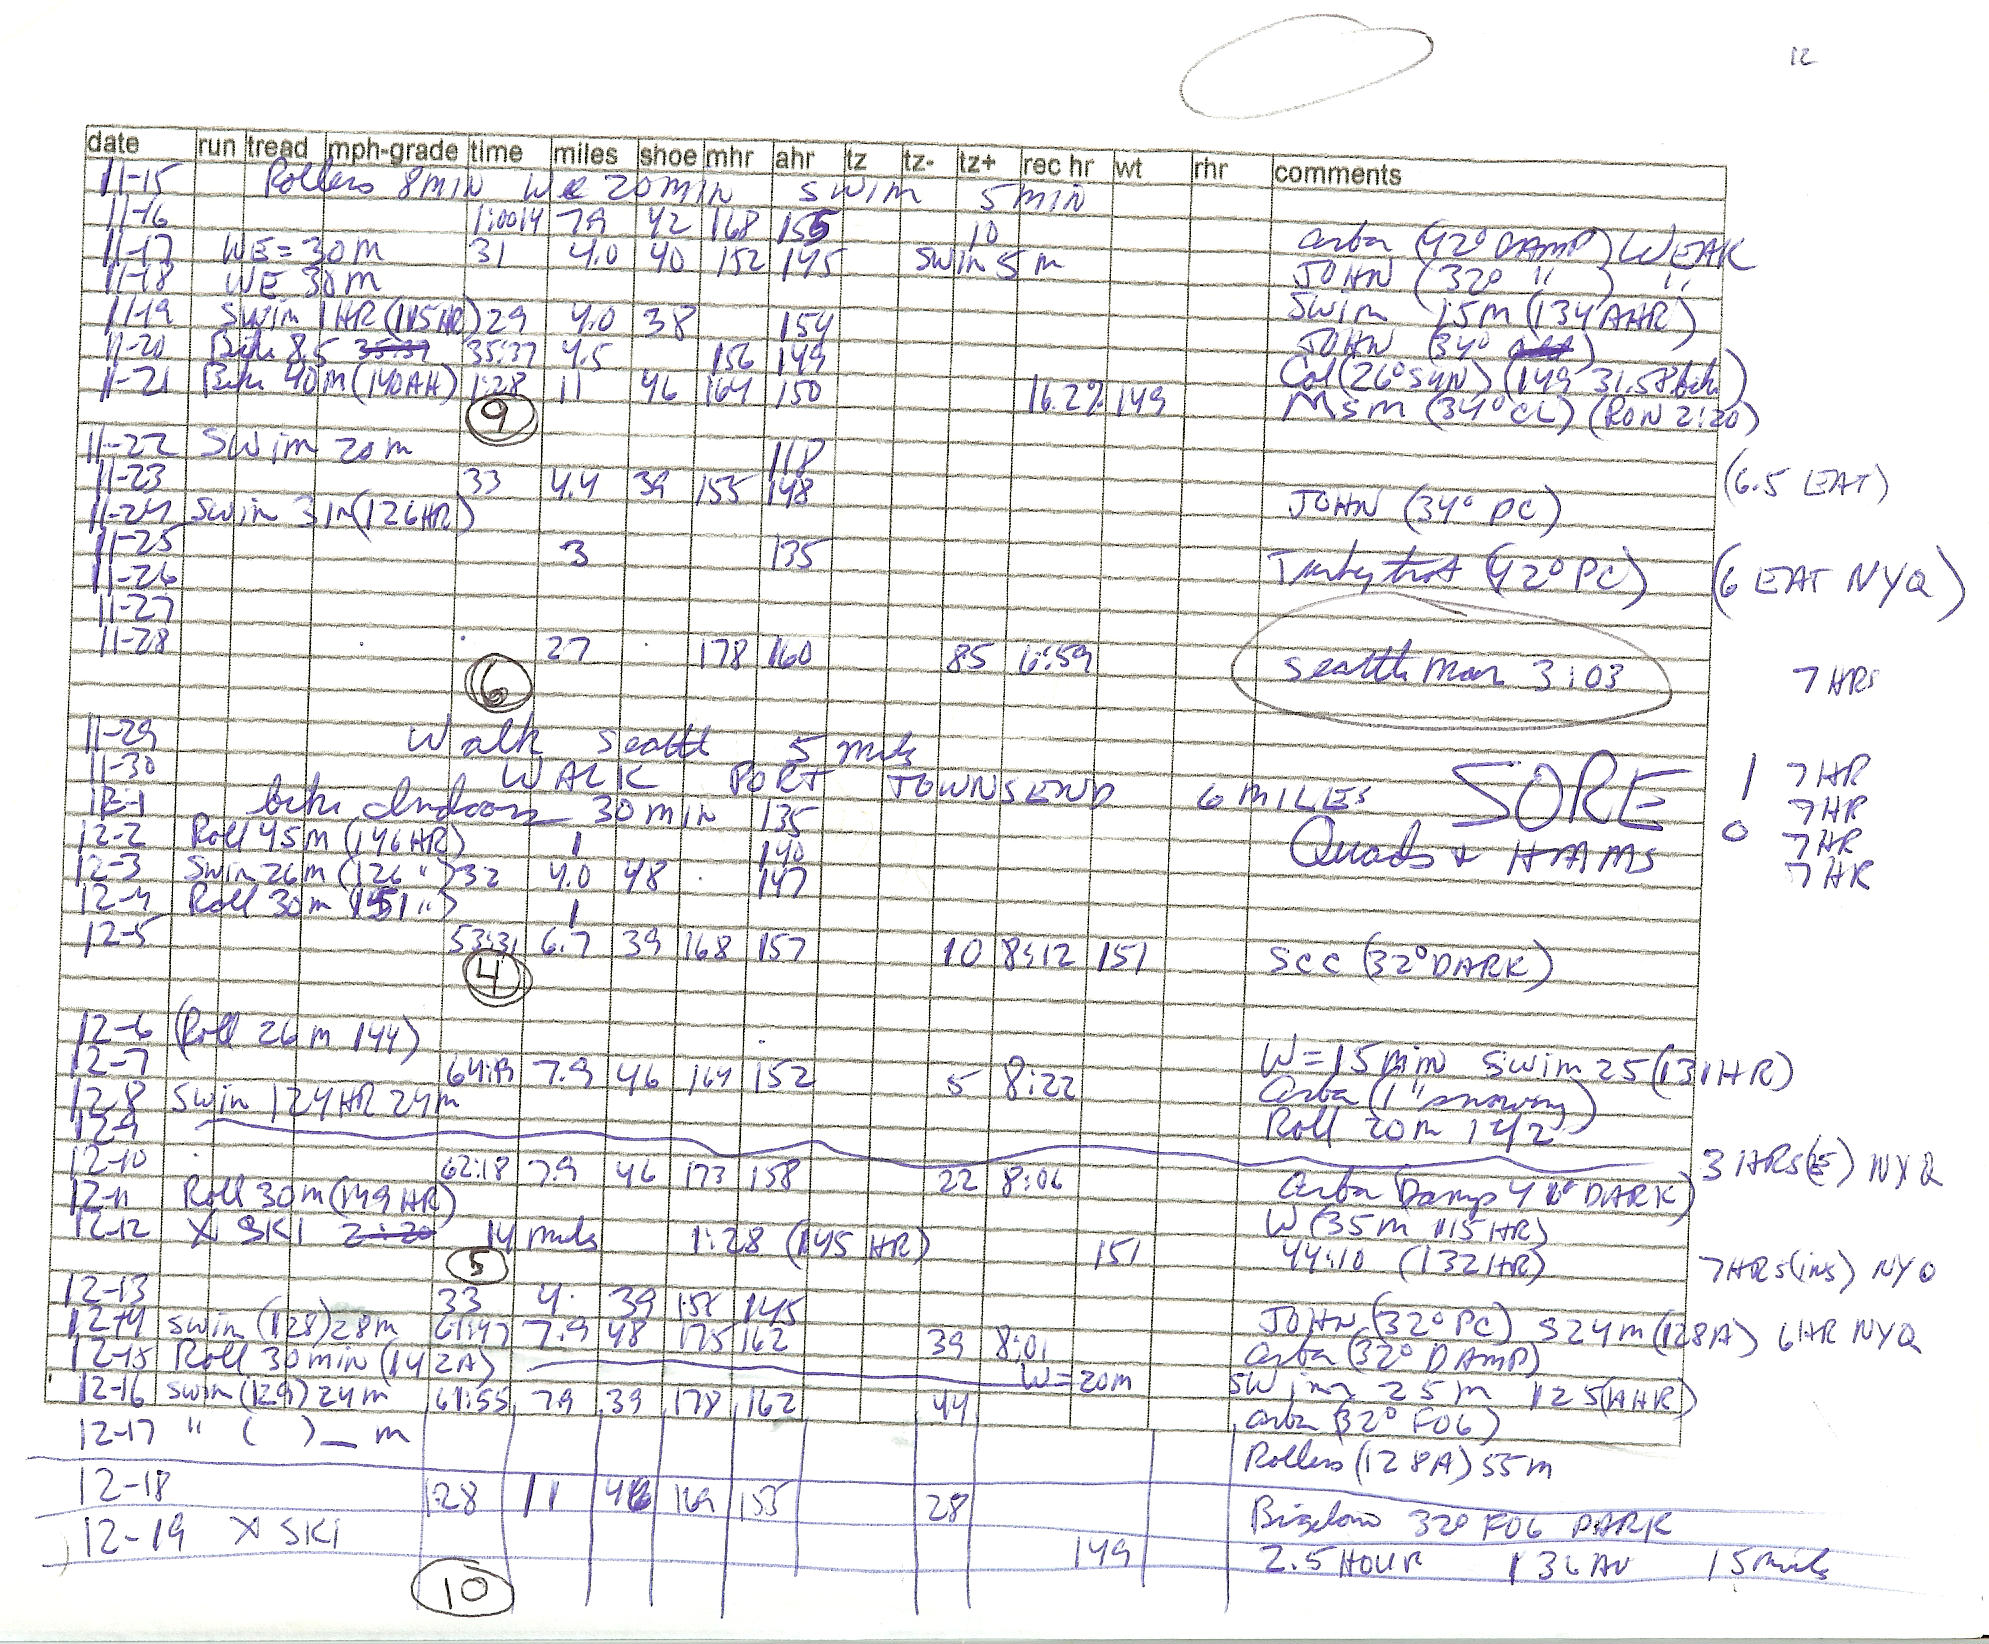 12
date run tread mph-grade time miles shoe mhr ahr tz tz- tz+ rec hr wt rhr comments
11-15 Rollers 8 MIN WE 20 MIN SWIM 5 MIN
11-16 1:0014 7.9 42 168 155 10 (42° DAMP) WEAK
11-17 WE = 30 M 31 4.0 40 152 145 SWIM 5 m JOHN (32° " ) "
11-18 WE 30 M SWIM 15 M (134 AHR)
11-19 SWIM 1 HR (115 HR) 29 4.0 38 154 JOHN (34°
11-20 Bike 8.5 35:37 35:37 4.5 156 149 Col (26° SUN) (149 31.58 bike)
11-21 Bike 40 M (140 AH) 1:28 11 46 164 150 16.2% 149 MSM (34° CL) (RON 2:20)
9
11-22 SWIM 20 m 118
11-23 33 4.4 39 155 148 JOHN (34° PC) (6.5 EAT)
11-24 Swim 31 (126 HR)
11-25 3 135 Turkey trot (42° PC) (6 EAT NYQ)
11-26
11-27
11-28 27 178 160 85 6:59 Seattle Mar 3:03 7 HRS
6
11-29 Walk Seattle 5 miles 1 7 HR
11-30 WALK PORT TOWNSEND 6 MILES SORE 7 HR
12-1 bike Indoors 30 min 135 0 7 HR
12-2 Roll 45 M (146 HR) 1 140 Quads + HAMS 7 HR
12-3 Swim 26 M (126 ") 32 4.0 48 147
12-4 Roll 30 m (151 ") 1
12-5 53:31 6.7 39 168 157 10 8:12 151 SCC (32° DARK)
4
12-6 (Roll 26 m 144) W = 15 min Swim 25 (131 HR)
12-7 64:19 7.9 46 164 152 5 8:22 (1" snowing)
12-8 Swim 124 HR 24 m Roll 20 m 142
12-9 3 HRS(E) NYQ
12-10 62:18 7.9 46 173 158 22 8:06 (Damp 41° DARK)
12-11 Roll 30 m (149 HR) W (35 m 115 HR)
12-12 X SKI 2:20 14 miles 1:28 (145 HR) 151 44:10 (132 HR) 7 HRS (ins) NYQ
5
12-13 33 4. 39 155 145 JOHN (32° PC) S 24 m (128 A) 6 HR NYQ
12-14 Swim (128) 28 m 61:47 7.9 48 175 162 39 8:01 (32° DAMP)
12-15 Roll 30 min (142 A) W = 20 m SWim 25 m 125 (AHR)
12-16 Swim (129) 24 m 61:55 7.9 39 178 162 44 (32° FOG)
12-17 " ( ) _ m Rollers (128 A) 55 m
12-18 1:28 11 46 169 155 28 Bigelow 32° FOG DARK
12-19 X SKI 149 2.5 HOUR 136 AV 15 miles
10